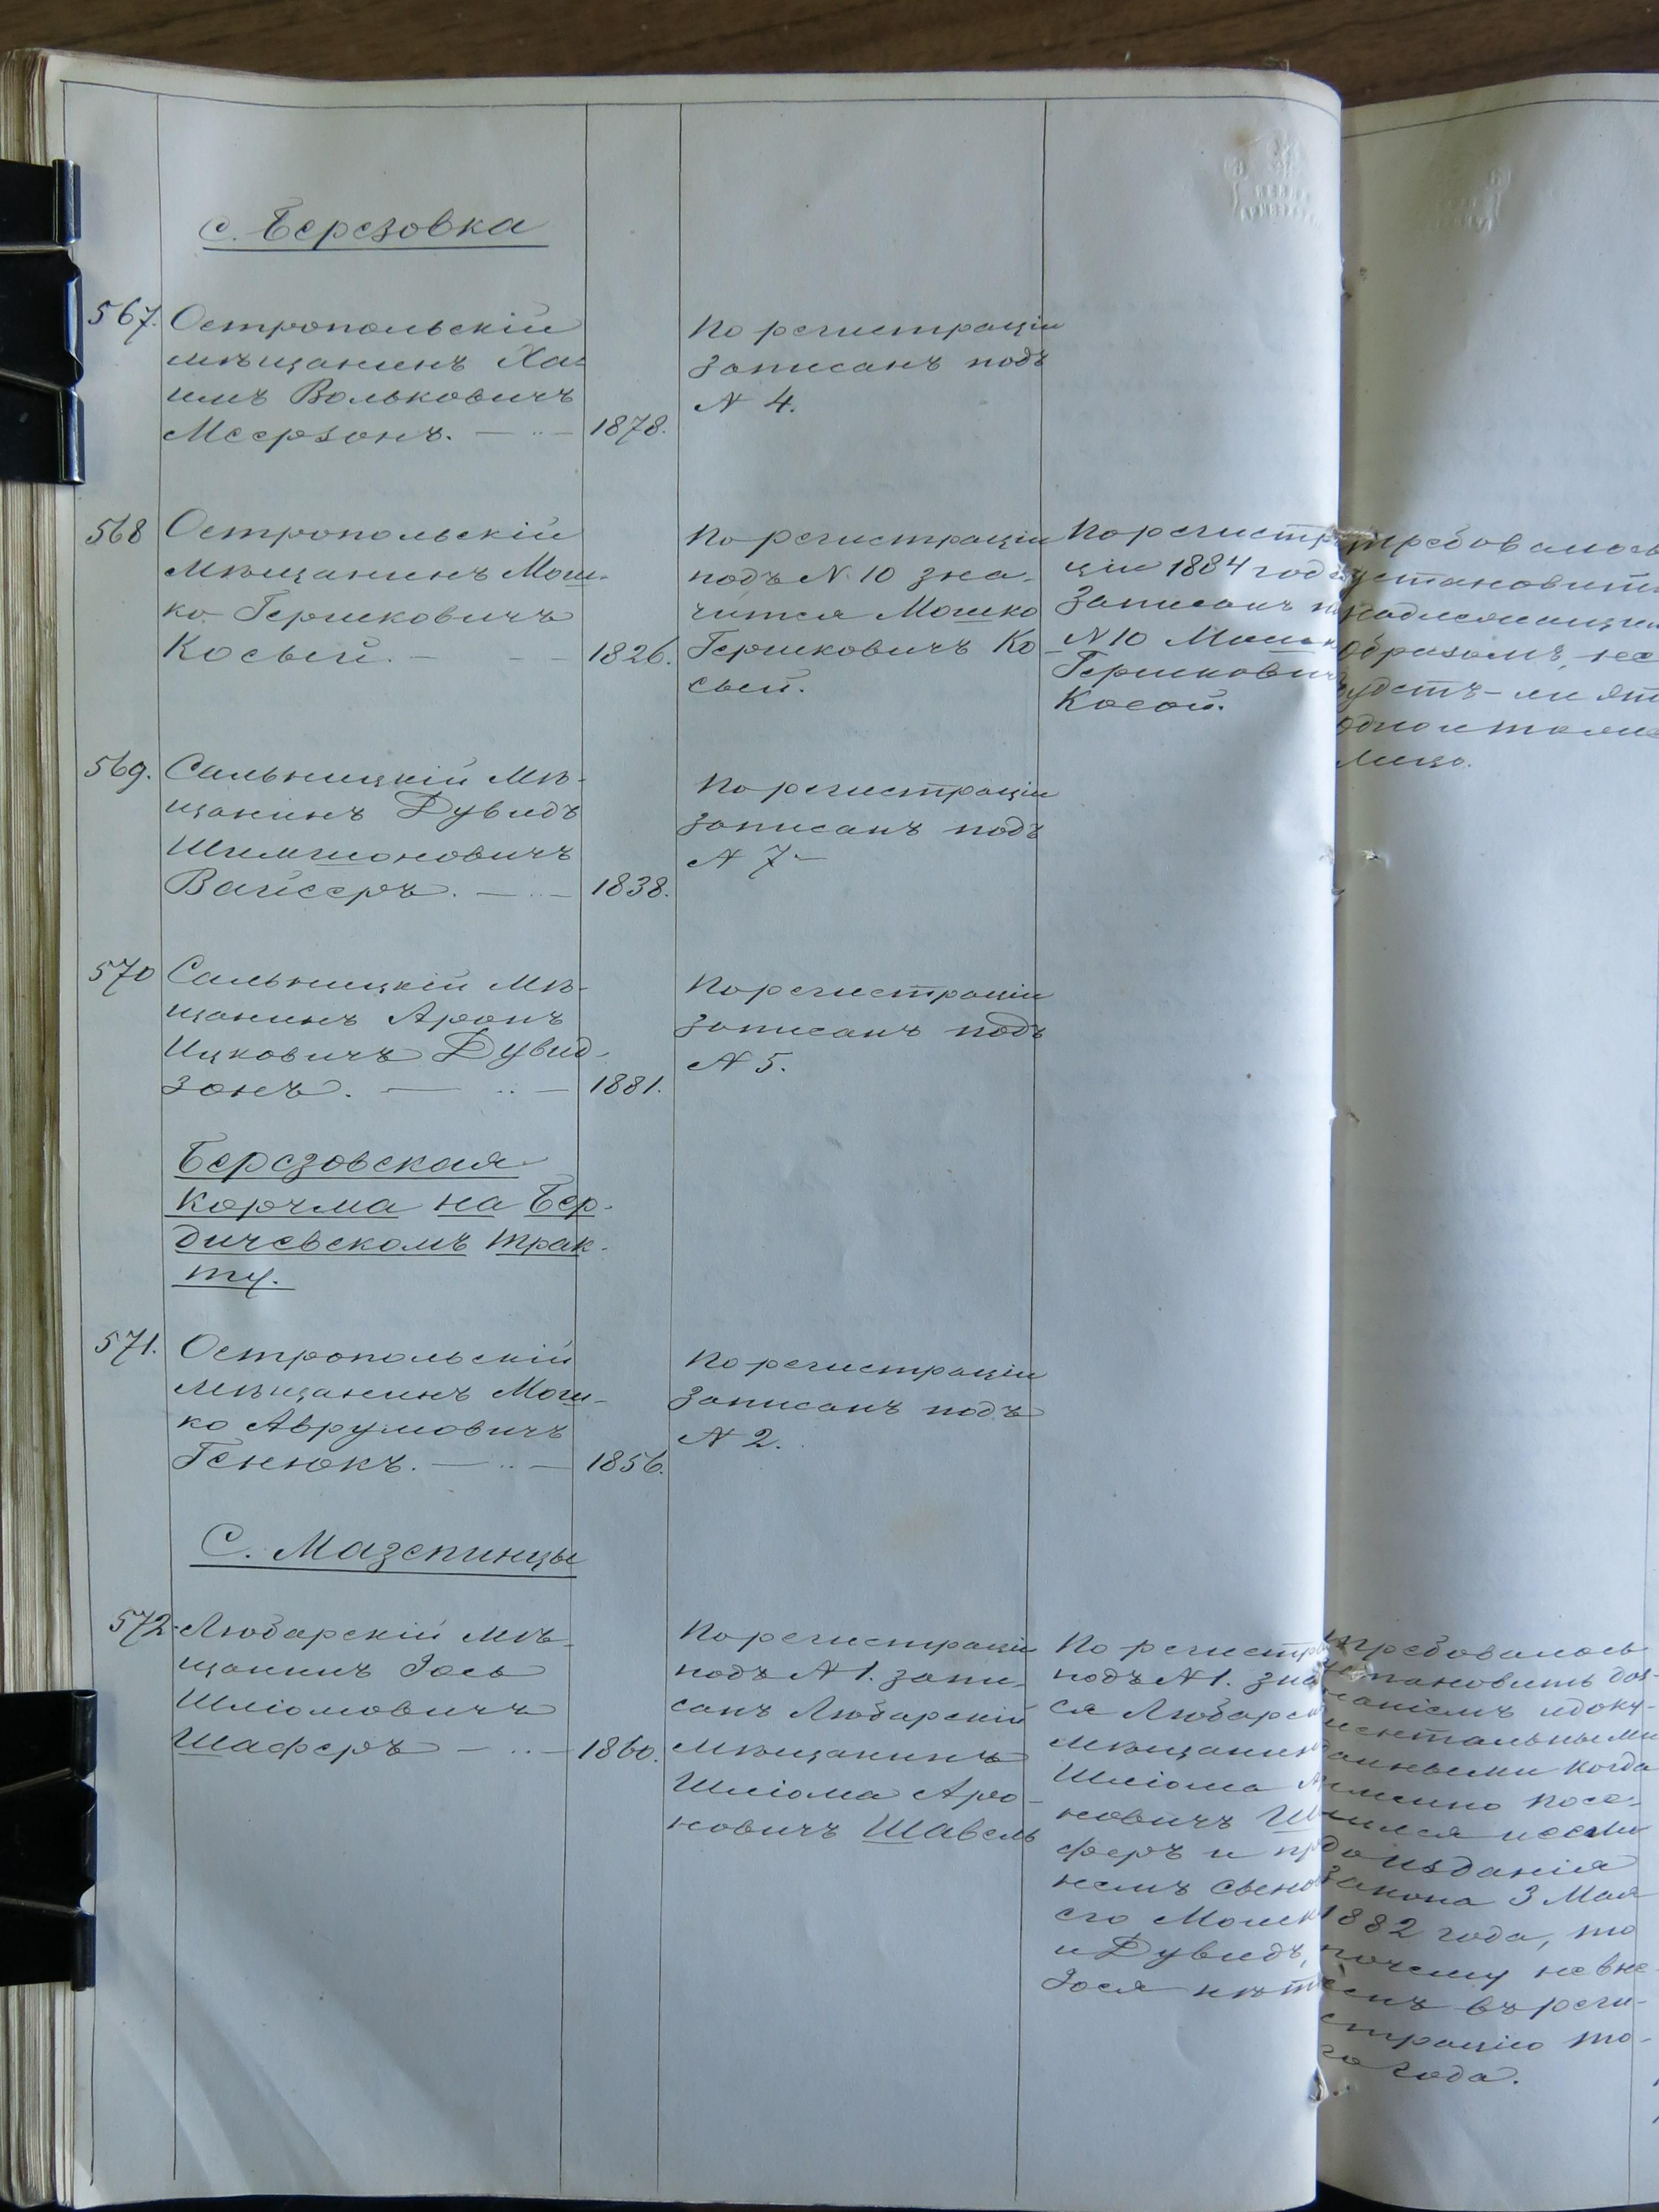 с. Березовка
567. Остропольскій
мѣщанинъ Ха-
имъ Вольковичъ
Меерзонъ. 1878.
По регистраціи
записанъ подъ
№ 4.
568 Остропольскій
мѣщанинъ Мош-
ко Гершковичъ
Косый. 1826.
По регистраціи
подъ № 10 зна-
чится Мошко
Гершковичъ Ко
сый.
По регистр
ціи 1884 год
записанъ
№ 10 Мошк
Гершкови
Косой.
требовалось
установить
надлежащим
образомъ, не
будетъ-ли эт
одно и тоже
лицо.
569. Сальницкій мѣ-
щанинъ Дувидъ
Шимшоновичъ
Вайсеръ. 1838.
По регистраціи
записанъ подъ
№ 7
570 Сальницкій мѣ-
щанинъ Аронъ
Ицковичъ Дувид-
зонъ. 1881.
По регистраціи
записанъ подъ
№ 5.
Березовская
корчма на Бер-
дичевскомъ трак-
ту.
571. Остропольскій
мѣщанинъ Мош-
ко Аврумовичъ
Генюкъ. 1856.
По регистраціи
записанъ подъ
№ 2.
С. Мазепинцы
572 Любарскій мѣ-
щанинъ Іось
Шліомовичъ
Шаферъ 1860.
По регистраціи
подъ № 1. запи-
санъ Любарскій
мѣщанинъ
Шліома Аро-
новичъ Шавель
По регистра
подъ № 1. зна
ся Любарск
мѣщанин
Шліома А
новичъ Ша
феръ и пр
немъ сыно
его Мошк
и Дувидъ,
Іося нѣт
требовалось
установить доз-
наніемъ и доку-
ментальными
данными когда
именно посе-
лился и если
до изданія
закона 3 Мая
1882 года, то
почему не вне-
сенъ въ реги-
страцію то-
го года.